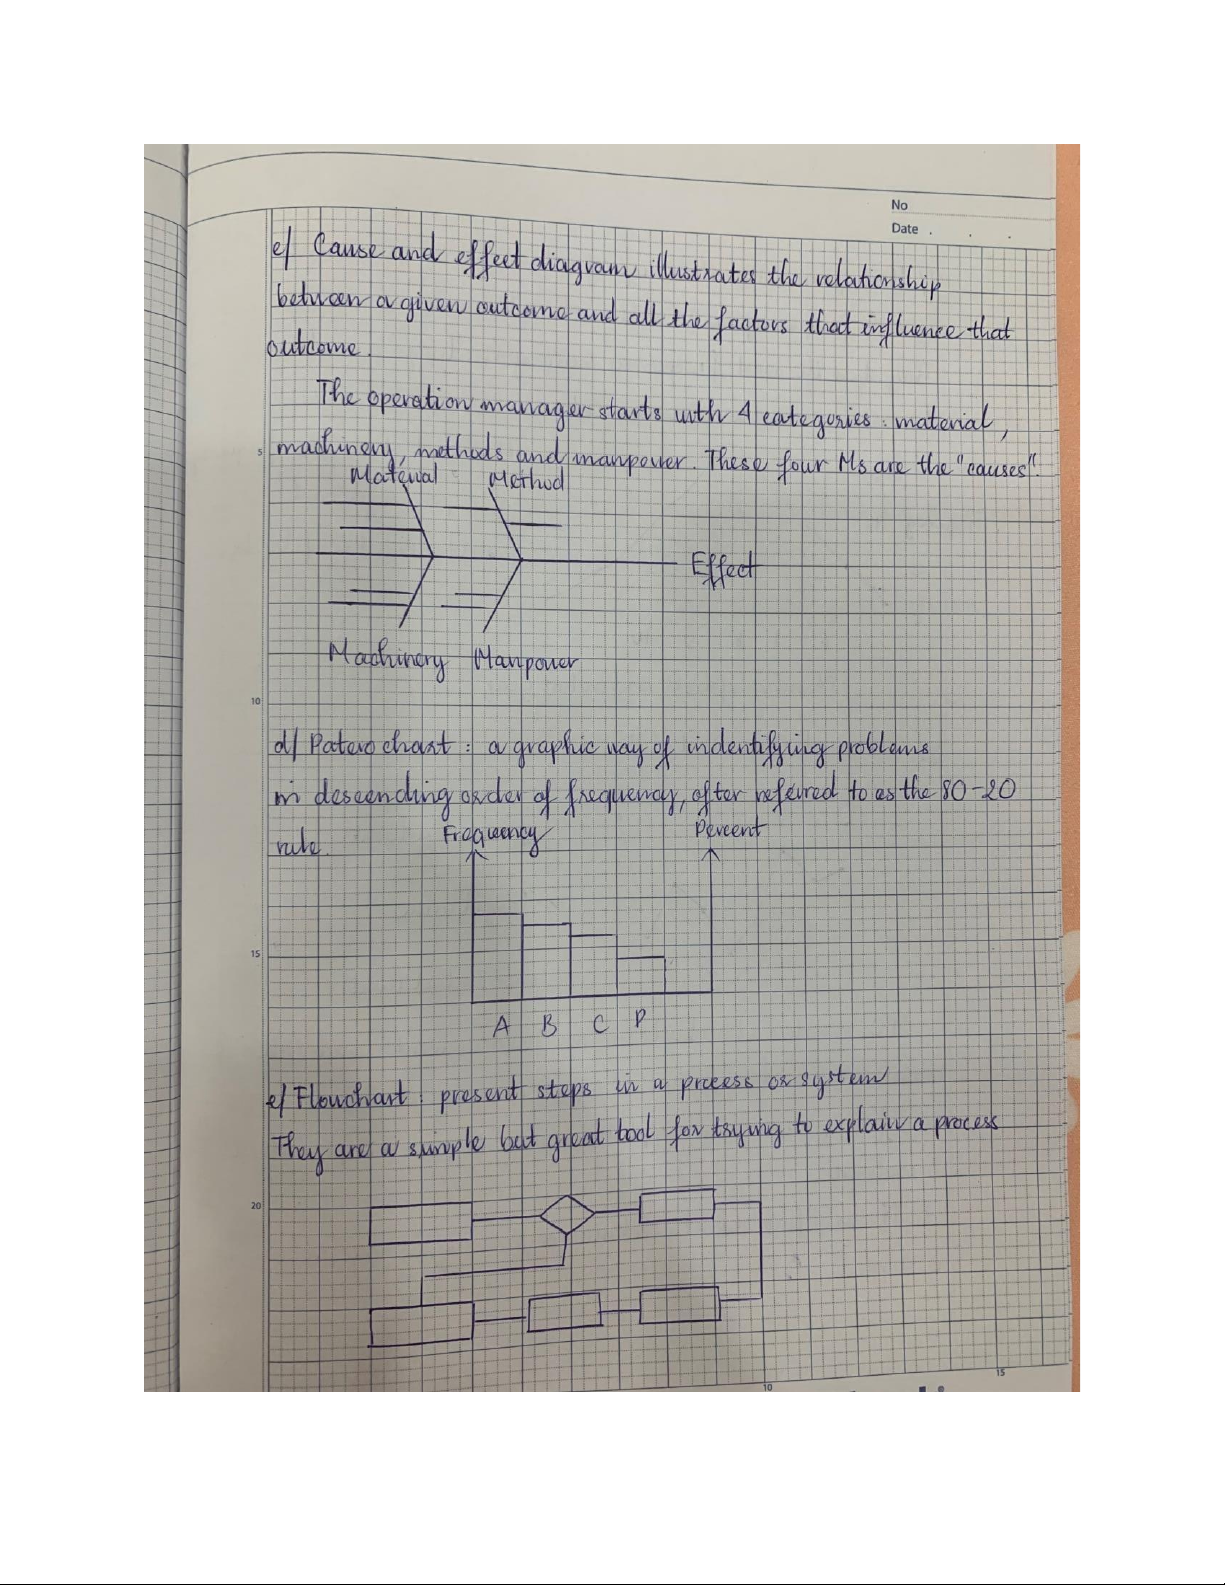 No
Date . . .
c/ Cause and effect diagram illustrates the relationship
between a given outcome and all the factors that influence that
outcome.
The operation manager starts with 4 categories : material,
5
machinery, methods and manpower. These four Ms are the "causes".
Material Method
Effect
Machinery Manpower
10
d/ Patero chart : a graphic way of indentifying problems
in descending order of frequency, after referred to as the 80-20
rule.
Frequency Percent
15
A B C D
e/ Flowchart : present steps in a process or system
They are a simple but great tool for trying to explain a process
20
10 15